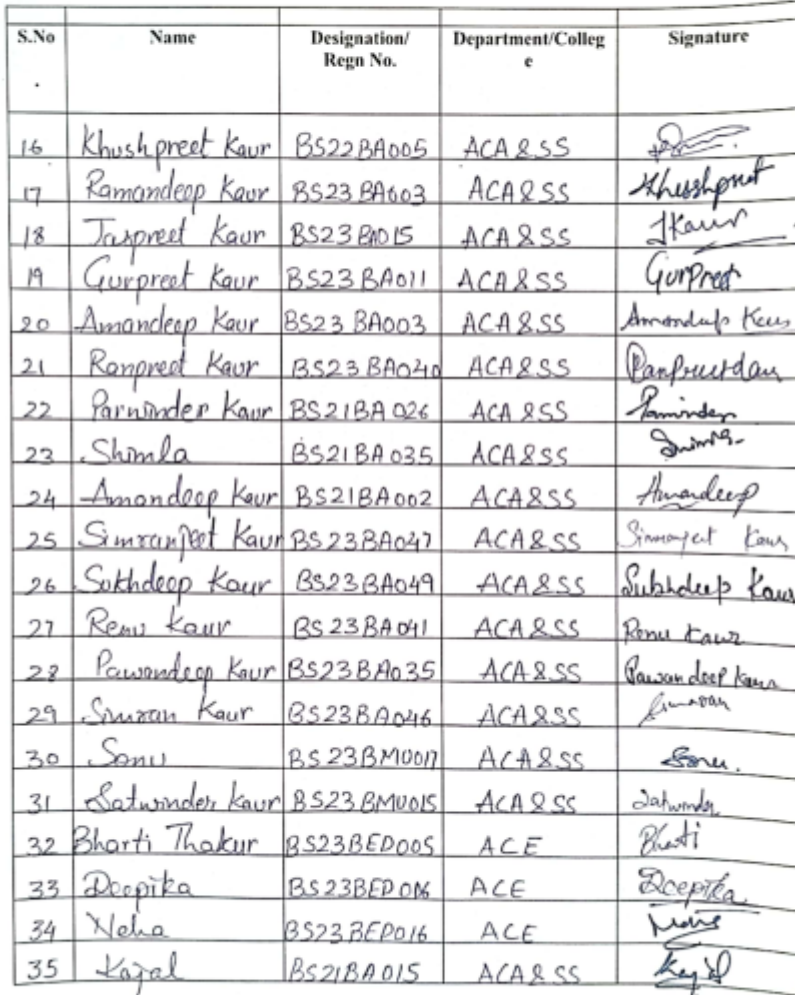 S.No Name Designation/ Department/Colleg Signature
. Regn No. e
16 Khushpreet Kaur BS22BA005 ACA&SS
17 Ramandeep Kaur BS23BA003 ACA&SS Khushpreet
18 Jaspreet Kaur BS23BA015 ACA&SS JKaur
19 Gurpreet Kaur BS23BA011 ACA&SS Gurpreet
20 Amandeep Kaur BS23BA003 ACA&SS Amandeep Kaur
21 Ranpreet Kaur BS23BA040 ACA&SS
22 Parwinder Kaur BS21BA026 ACA&SS
23 Shimla BS21BA035 ACA&SS
24 Amandeep Kaur BS21BA002 ACA&SS Amandeep
25 Simranjeet Kaur BS23BA047 ACA&SS Simranjeet Kaur
26 Sukhdeep Kaur BS23BA049 ACA&SS Sukhdeep Kaur
27 Renu Kaur BS23BA041 ACA&SS Renu Kaur
28 Pawandeep Kaur BS23BA035 ACA&SS Pawandeep Kaur
29 Simran Kaur BS23BA046 ACA&SS Simran
30 Sonu BS23BMU017 ACA&SS Sonu.
31 Satwinder Kaur BS23BMU015 ACA&SS Satwinder
32 Bharti Thakur BS23BED005 ACE Bharti
33 Deepika BS23BED006 ACE Deepika
34 Neha BS23BED016 ACE
35 Kajal BS21BA015 ACA&SS Kajal